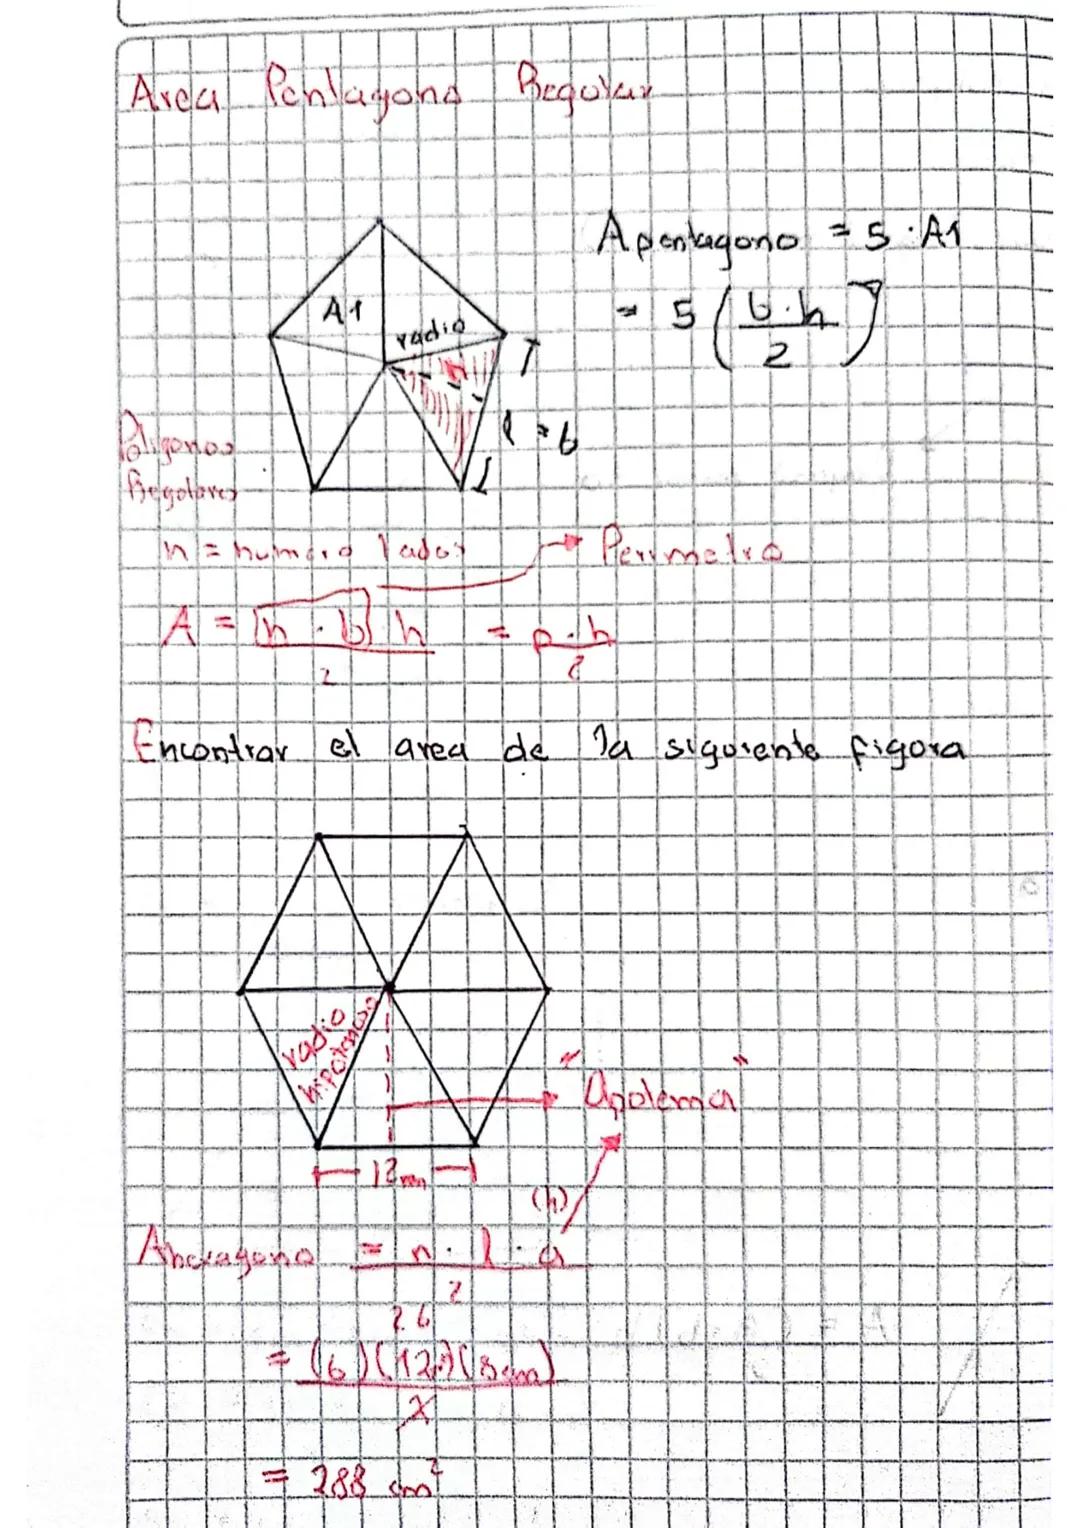 Area Pentagono Regular
A pentagono = 5 · A1
= 5 ( b · h / 2 )
A1
radio
h
l = b
Poligonos
Regolares
n = numero lados
Perimetro
A = n · b · h / 2 = p · h / 2
Encontrar el area de la siguiente figora
radio
hipotenusa
"Apotema"
12 cm
(h)
Ahexagono = n · l · a / 2
26
= (6)(12)(8cm) / 2
= 288 cm²